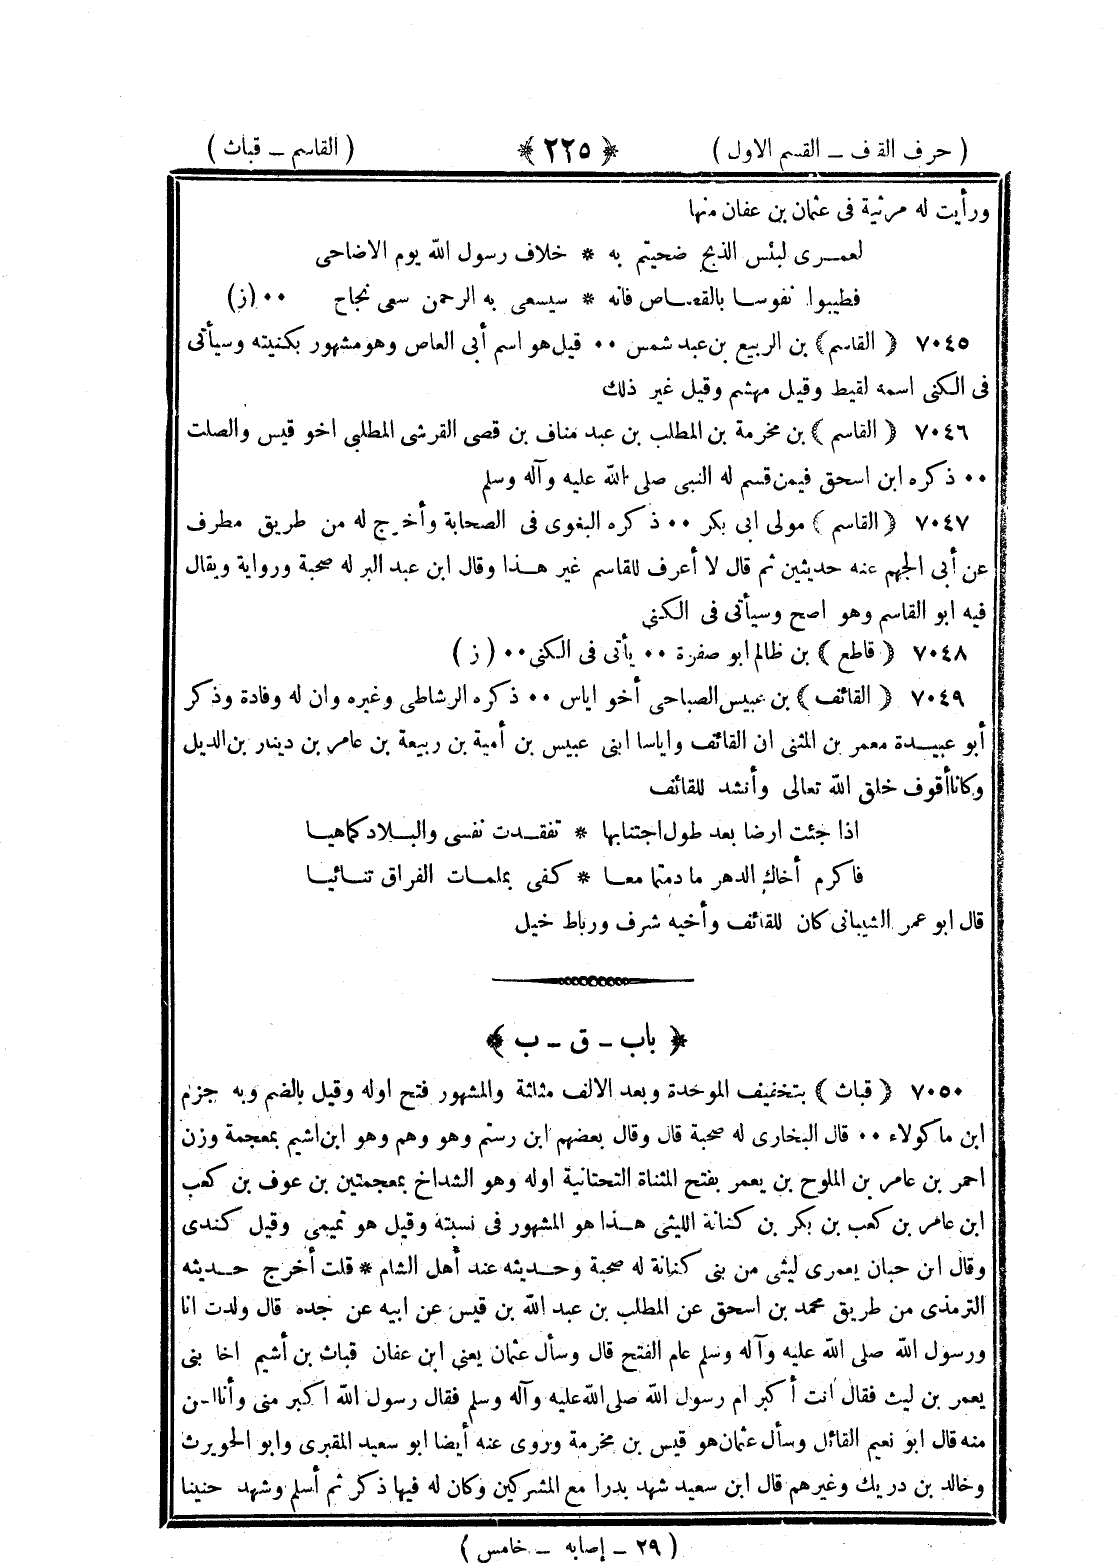 ( حرف القـف ـ القسم الاول ) ﴿ ٢٢٥ ﴾ ( القاسم ـ قباث )
ورأيت له مرثية فى عثمان بن عفان منها
لعمـرى لبئس الذبح ضحيتم به * خلاف رسول الله يوم الاضاحى
فطيبوا نفوسـا بالقصـاص فانه * سيسعى به الرحمن سعى نجاح ٠٠ (ز)
٧٠٤٥ ﴿ القاسم ﴾ بن الربيع بن عبد شمس ٠٠ قيل هو اسم أبى العاص وهو مشهور بكنيته وسيأتى
فى الكنى اسمه لقيط وقيل مهشم وقيل غير ذلك
٧٠٤٦ ﴿ القاسم ﴾ بن مخرمة بن المطلب بن عبد مناف بن قصى القرشى المطلبى اخو قيس والصلت
٠٠ ذكره ابن اسحق فيمن قسم له النبى صلى الله عليه وآله وسلم
٧٠٤٧ ﴿ القاسم ﴾ مولى ابى بكر ٠٠ ذكره البغوى فى الصحابة وأخرج له من طريق مطرف
عن أبى الجهم عنه حديثين ثم قال لا أعرف للقاسم غير هـذا وقال ابن عبد البر له صحبة ورواية ويقال
فيه ابو القاسم وهو اصح وسيأتى فى الكنى
٧٠٤٨ ﴿ قاطع ﴾ بن ظالم ابو صفرة ٠٠ يأتى فى الكنى ٠٠ ( ز )
٧٠٤٩ ﴿ القائف ﴾ بن عبيس الصباحى أخو اياس ٠٠ ذكره الرشاطى وغيره وان له وفادة وذكر
أبو عبيـدة معمر بن المثنى ان القائف واياسا ابنى عبيس بن أمية بن ربيعة بن عامر بن ديندر بن الديل
وكانا أقوف خلق الله تعالى وأنشد للقائف
اذا جئت ارضا بعد طول اجتنابها * تفقـدت نفسى والبـلاد كماهيـا
فاكرم أخاك الدهر ما دمتما معـا * كفى بملمـات الفراق تنـائيـا
قال ابو عمر الشيبانى كان للقائف وأخيه شرف ورباط خيل
﴿ باب ـ ق ـ ب ﴾
٧٠٥٠ ﴿ قباث ﴾ بتخفيف الموحدة وبعد الالف مثلثة والمشهور فتح اوله وقيل بالضم وبه جزم
ابن ماكولاء ٠٠ قال البخارى له صحبة قال وقال بعضهم ابن رستم وهو وهم وهو ابن اشيم بمعجمة وزن
احمر بن عامر بن الملوح بن يعمر بفتح المثناة التحتانية اوله وهو الشداخ بمعجمتين بن عوف بن كعب
ابن عامر بن كعب بن بكر بن كنانة الليثى هـذا هو المشهور فى نسبته وقيل هو تميمى وقيل كندى
وقال ابن حبان يعمرى ليثى من بنى كنانة له صحبة وحـديثه عند أهل الشام * قلت أخرج حـديثه
الترمذى من طريق محمد بن اسحق عن المطلب بن عبد الله بن قيس عن ابيه عن جده قال ولدت انا
ورسول الله صلى الله عليه وآله وسلم عام الفتح قال وسأل عثمان يعنى ابن عفان قباث بن أشيم اخا بنى
يعمر بن ليث فقال أنت أكبر ام رسول الله صلى الله عليه وآله وسلم فقال رسول الله اكبر منى وأنا اسن
منه قال ابو نعيم القائل وسأل عثمان هو قيس بن مخرمة وروى عنه أيضا ابو سعيد المقبرى وابو الحويرث
وخالد بن دريك وغيرهم قال ابن سعيد شهد بدرا مع المشركين وكان له فيها ذكر ثم أسلم وشهد حنينا
( ٢٩ ـ إصابه ـ خامس )